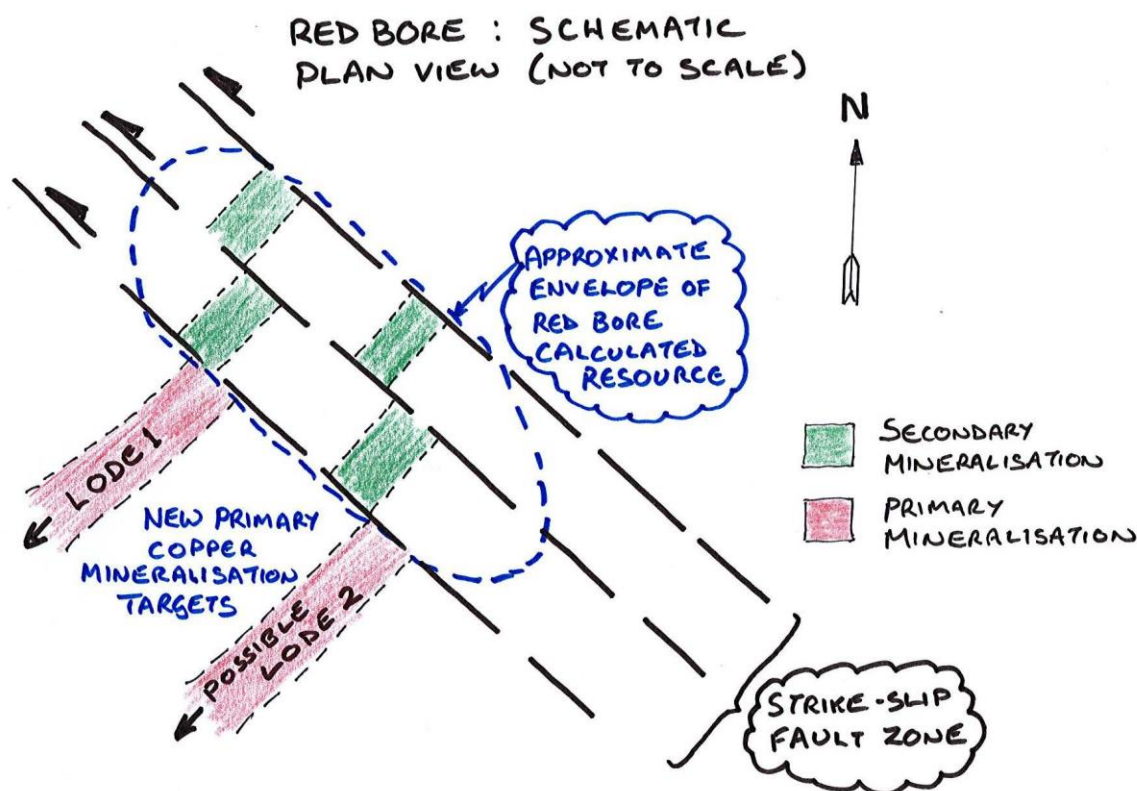 RED BORE : SCHEMATIC
PLAN VIEW (NOT TO SCALE)
N
APPROXIMATE
ENVELOPE OF
RED BORE
CALCULATED
RESOURCE
SECONDARY
MINERALISATION
PRIMARY
MINERALISATION
LODE 1
NEW PRIMARY
COPPER
MINERALISATION
TARGETS
POSSIBLE
LODE 2
STRIKE-SLIP
FAULT ZONE